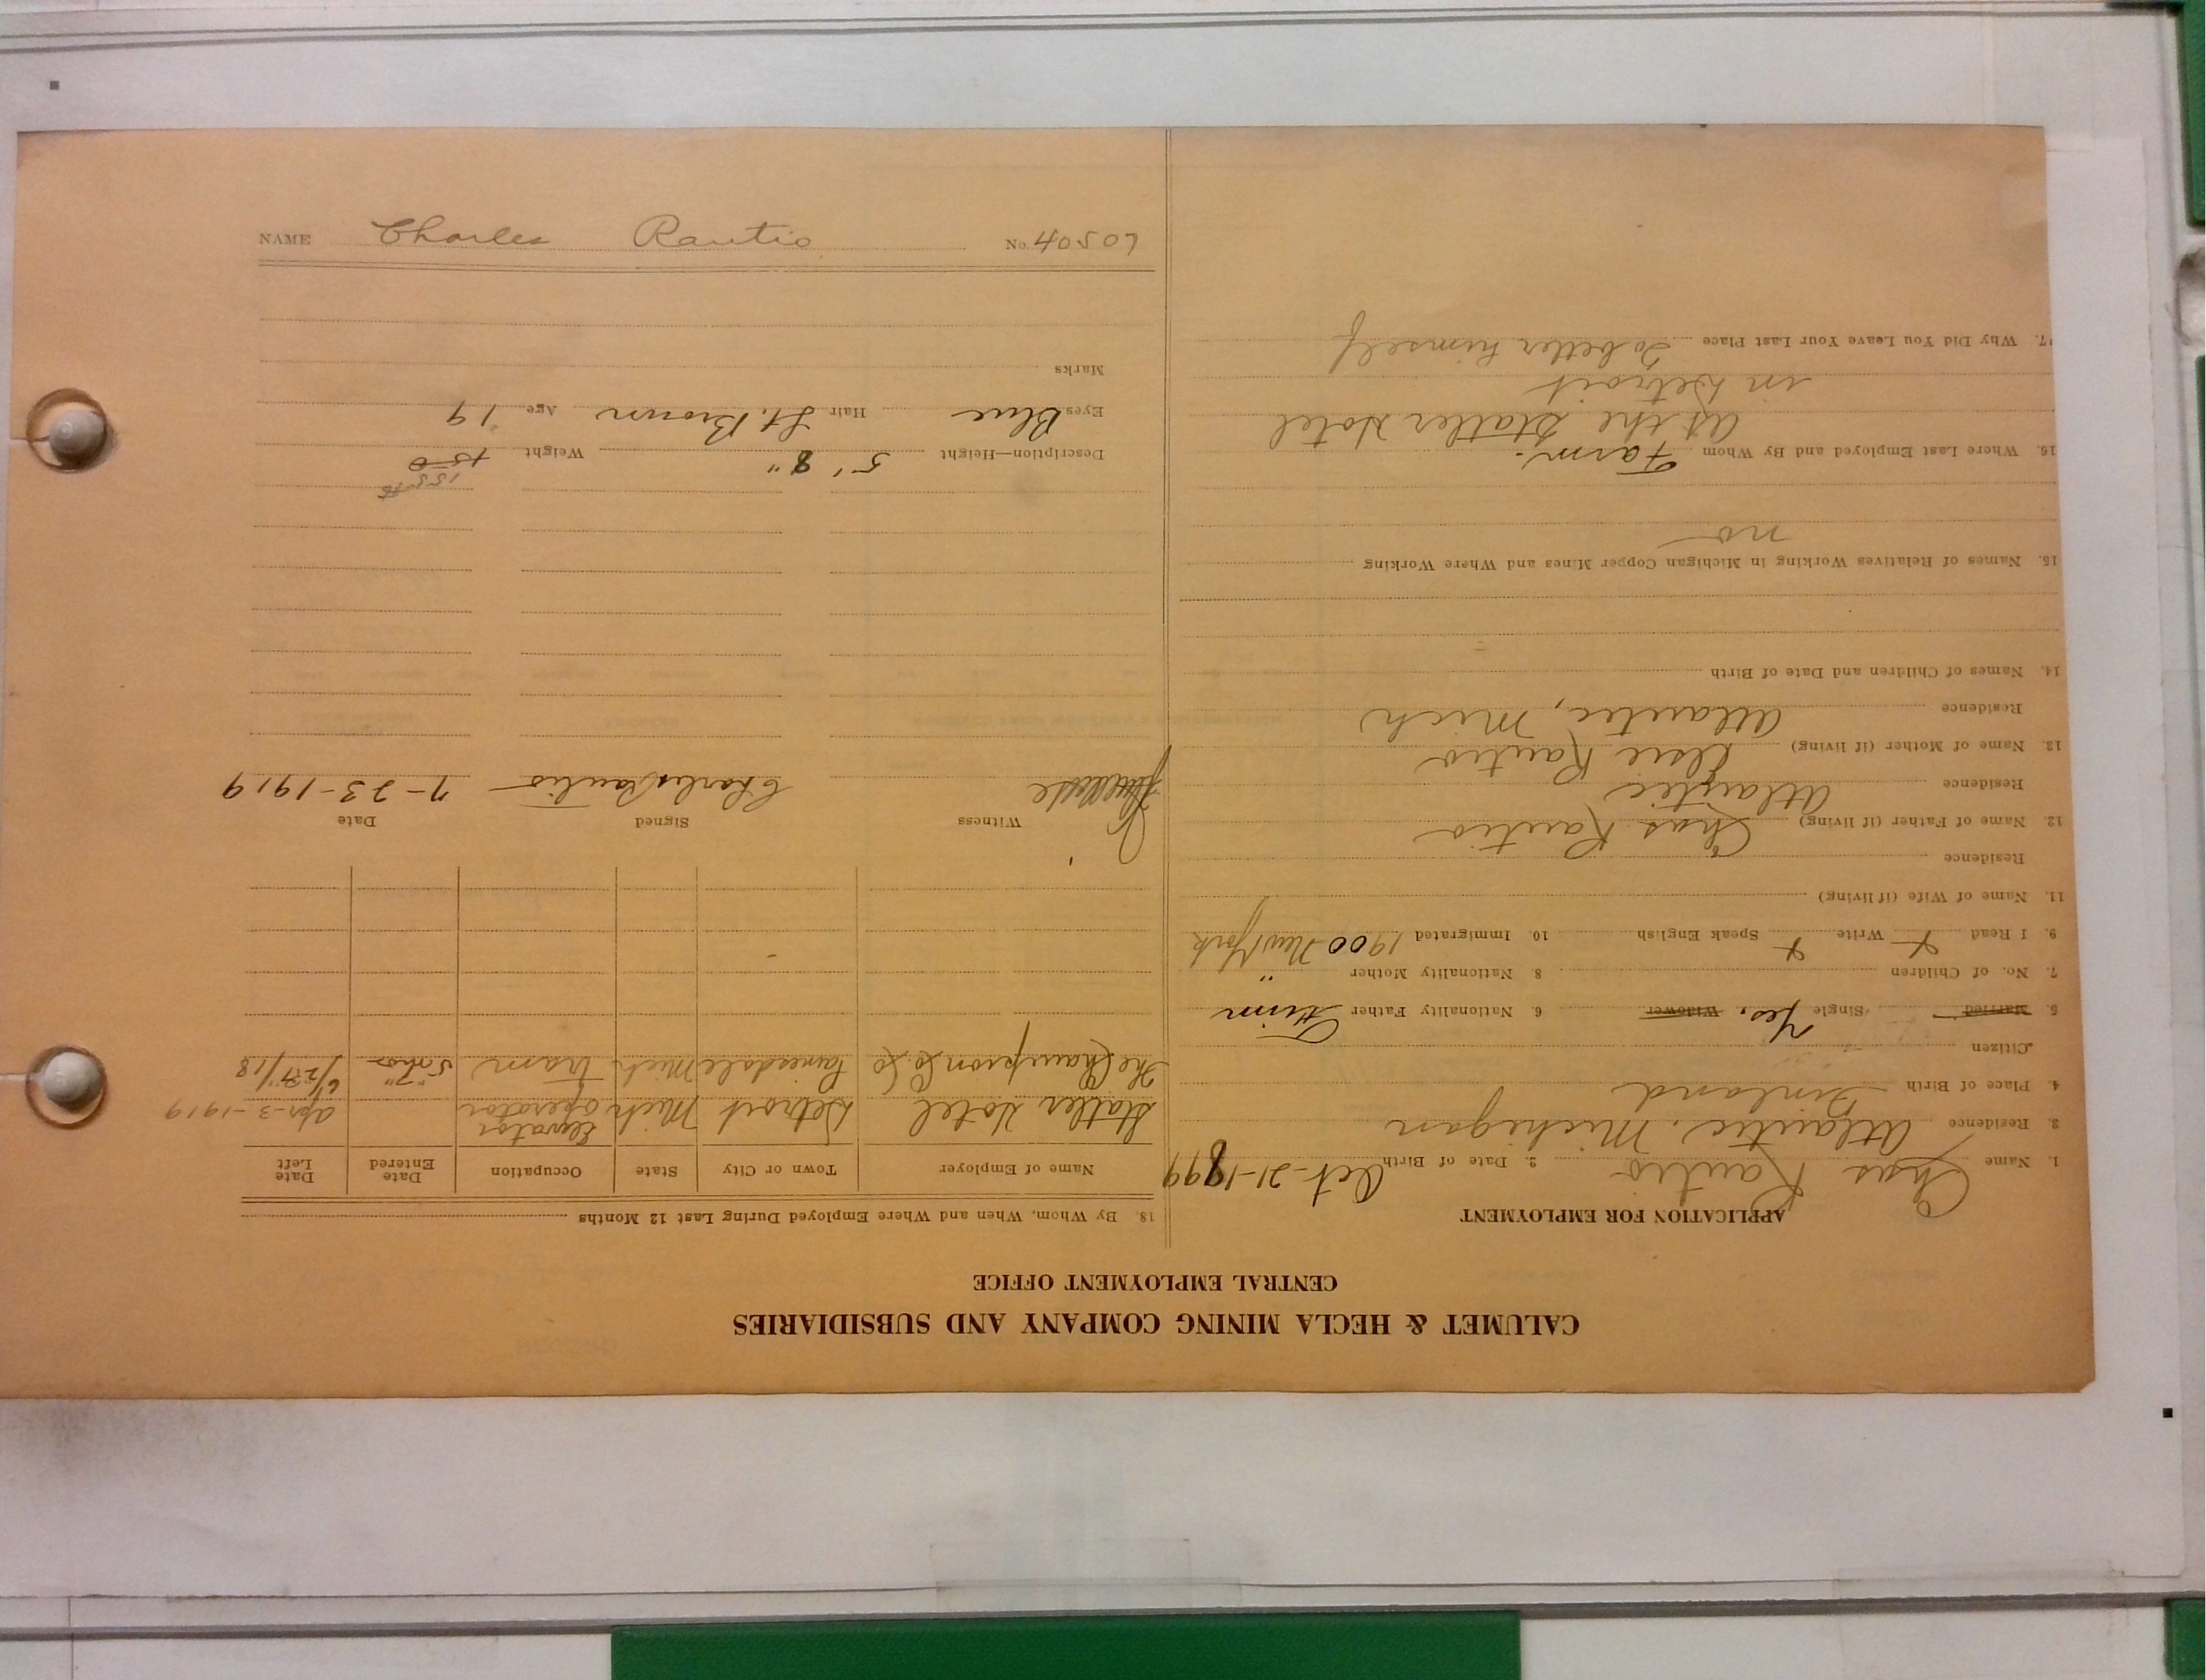 CALUMET & HECLA MINING COMPANY AND SUBSIDIARIES
CENTRAL EMPLOYMENT OFFICE
APPLICATION FOR EMPLOYMENT
1. Name Chas Rautio 2. Date of Birth Oct-21-1899
3. Residence Atlantic, Michigan
4. Place of Birth Finland
Citizen
5. Married Single Yes. Widower 6. Nationality Father Finn
7. No. of Children 8. Nationality Mother "
9. I Read x Write x Speak English 10. Immigrated 1900 New York
11. Name of Wife (if living)
Residence
12. Name of Father (if living) Chas Rautio
Residence Atlantic
13. Name of Mother (if living) Elsie Rautio
Residence Atlantic, Mich
14. Names of Children and Date of Birth
15. Names of Relatives Working in Michigan Copper Mines and Where Working
no
16. Where Last Employed and By Whom Farm.
At the Statler Hotel
in Detroit
17. Why Did You Leave Your Last Place To better himself
18. By Whom, When and Where Employed During Last 12 Months
Name of Employer Town or City State Occupation Date Entered Date Left
Statler Hotel Detroit Mich Elevator operator Apr-3-1919
The Champion C. Co Painesdale Mich Tram 5 mos 6/27/18
Witness Signed Date
Charles Rautio 7-23-1919
155
Description—Height 5' 8" Weight 150
Eyes Blue Hair Lt. Brown Age 19
Marks
NAME Charles Rautio No. 40507